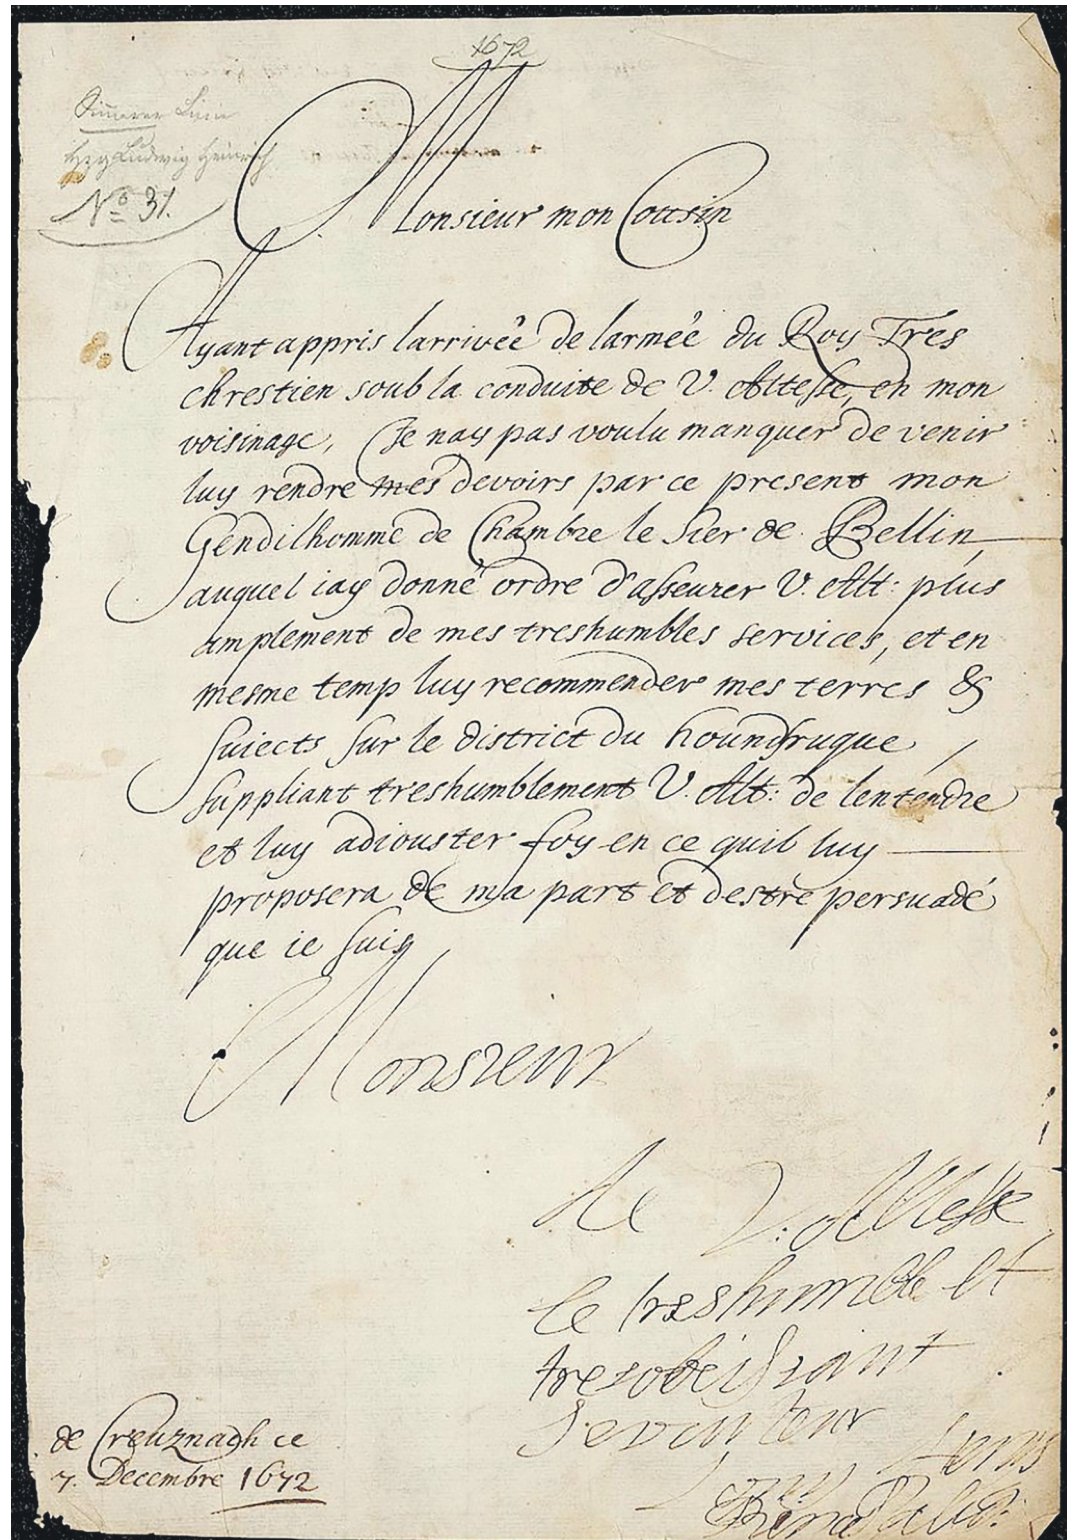 1672
Simmerer Linie
Hzg Ludwig Heinrich
No 31.
Monsieur mon Cousin
Ayant appris larriveé de larmeé du Roy Tres
chrestien soub la conduite de V. Altesse, en mon
voisinage, Je nay pas voulu manquer de venir
luy rendre mes devoirs par ce present mon
Gendilhomme de Chambre le Sier de Bellin,
auquel iay donné ordre d'asseurer V. Alt: plus
amplement de mes treshumbles services, et en
mesme temp luy recommender mes terres &
suiects sur le district du houndsruque,
suppliant treshumblement V. Alt: de lentendre
et luy adiouster foy en ce quil luy
proposera de ma part et destre persuadé
que ie suis
Monsieur
de V. Altesse
le treshumble et
tresobeissant
serviteur
Louis Henry
de Creuznagh ce
7. Decembre 1672